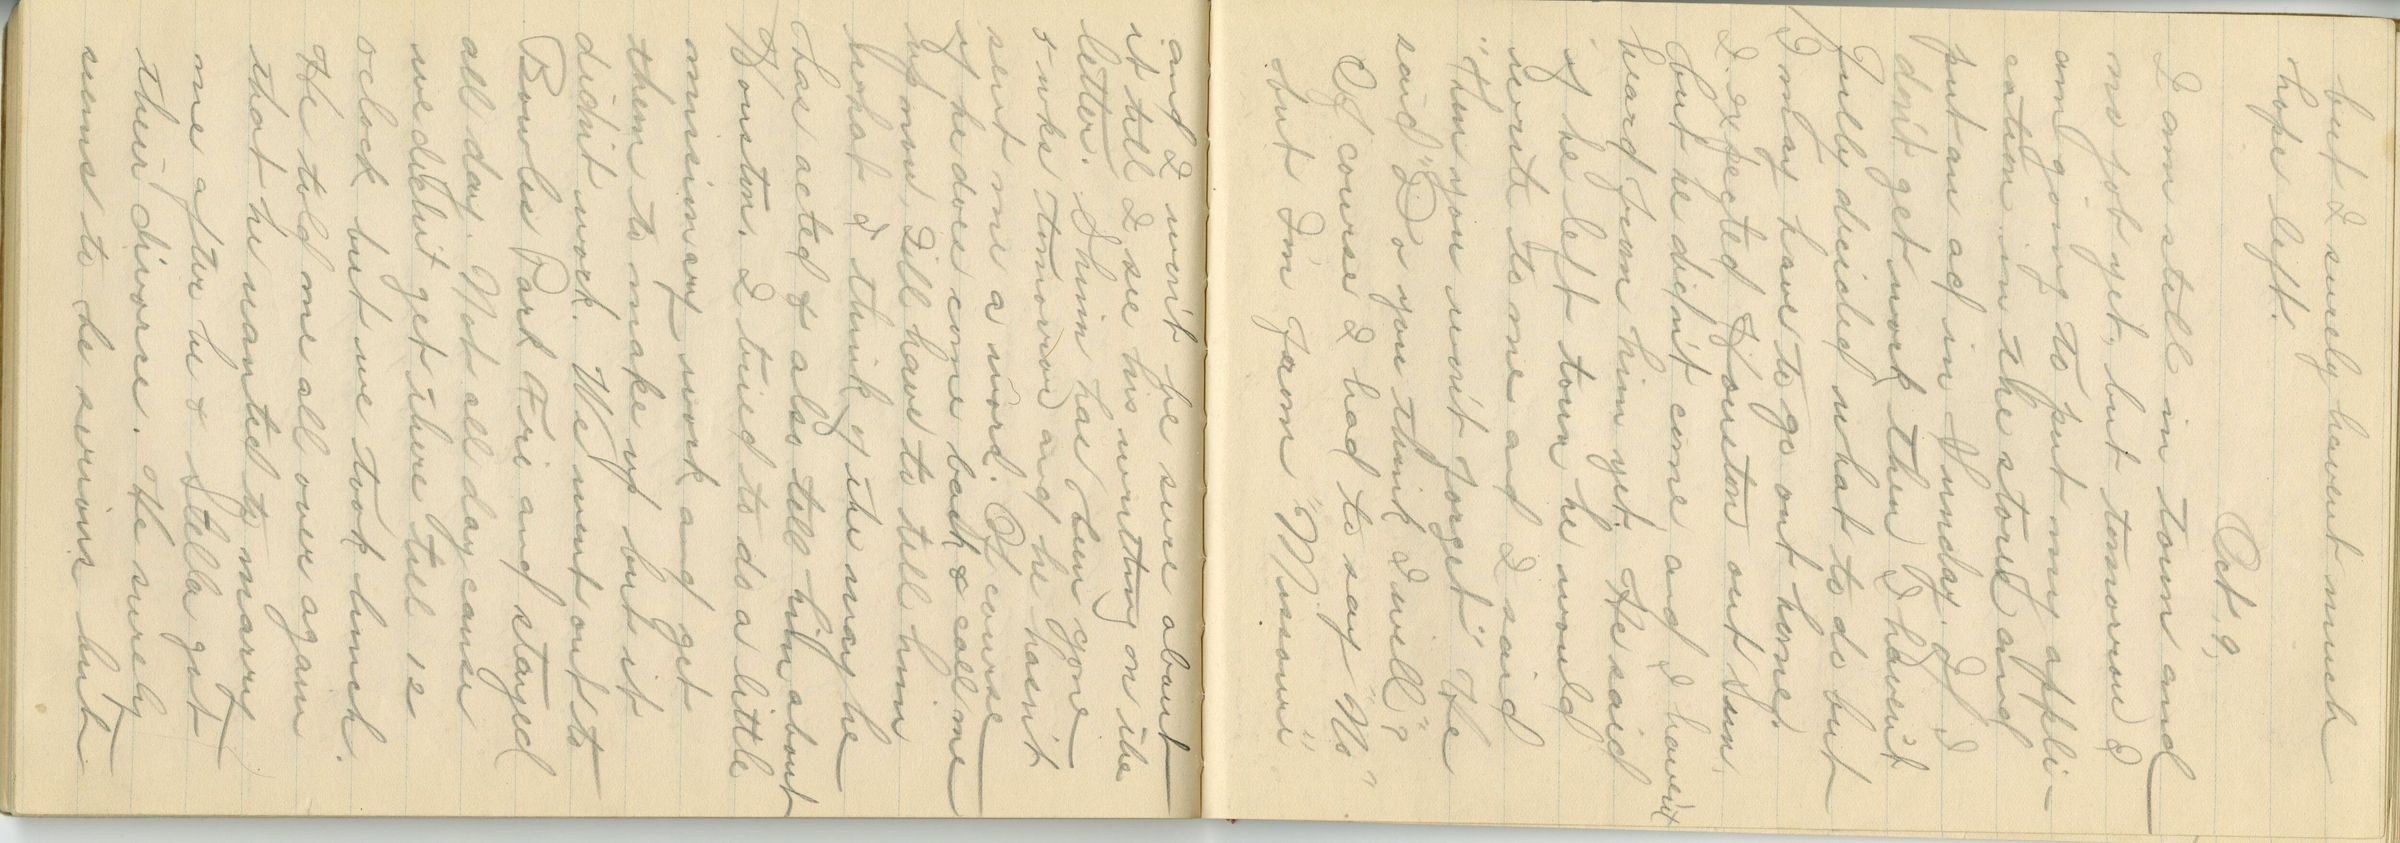 but I surely havent much
hope left.
Oct. 9,
I am still in town and
no job yet, but tomorrow I
am going to put my appli-
cation in the store and
put an ad in Sunday. If I
don't get work then I haven't
fully decided what to do but
I may have to go out home.
I expected Houston out Sun,
but he didn't come and I haven't
heard from him yet. He said
if he left town he would
write to me and I said
"then you won't forget" He
said "Do you think I will"?
Of course I had to say "No"
but I'm from "Missouri"
and I won't be sure about
it till I see his writting on the
letter. Shinn has been gone
3 wks tomorrow and he hasn't
sent me a word. Of course
if he does come back & call me
up now I'll have to tell him
what I think of the way he
has acted & also tell him about
Houston. I tried to do a little
missionary work and get
them to make up but it
didn't work. We went out to
Bowles Park Fri and stayed
all day. Not all day cause
we didn't get there till 12
oclock but we took lunch.
He told me all over again
that he wanted to marry
me after he & Stella get
their divorce. He surely
seems to be serious but